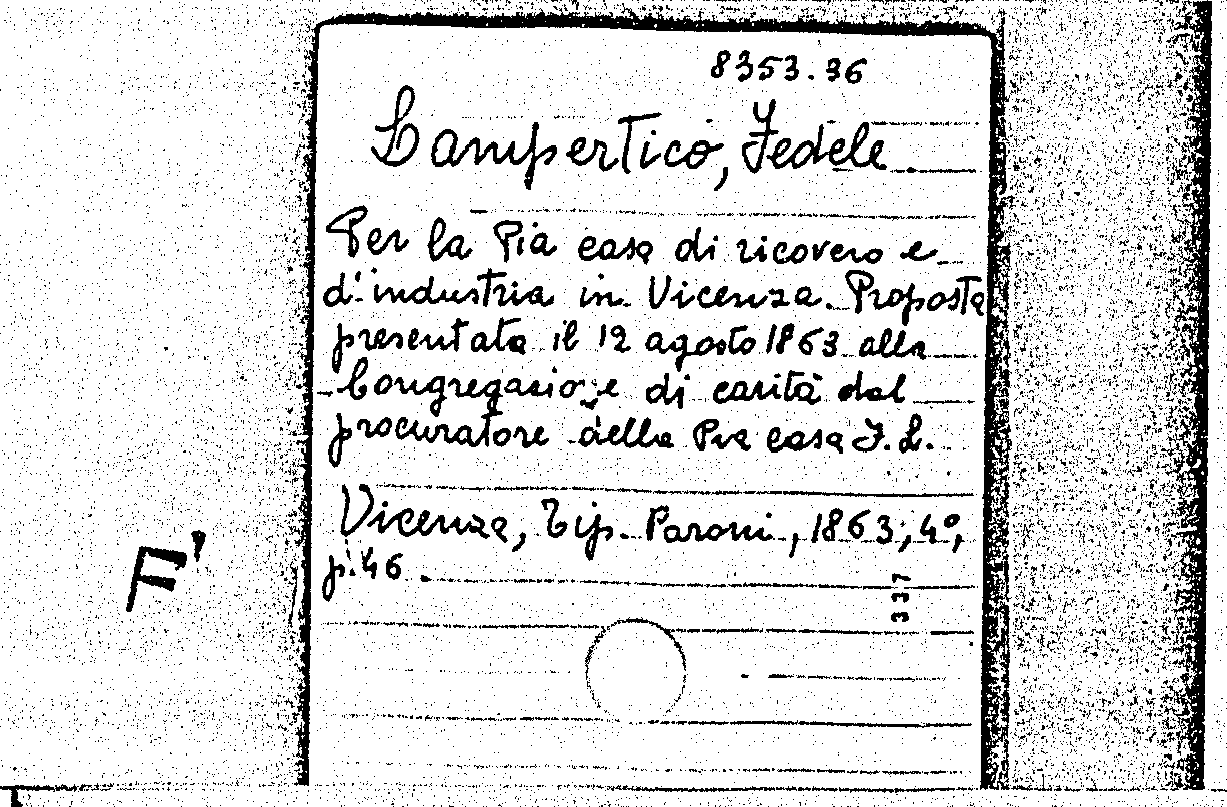 8353.36
Lampertico, Fedele
Per la Pia casa di ricovero e
d'industria in Vicenza. Proposta
presentata il 12 agosto 1863 alla
Congregazione di carità dal
procuratore della Pia casa F. L.
Vicenza, Tip. Paroni, 1863; 4º,
p. 46.
337
F'